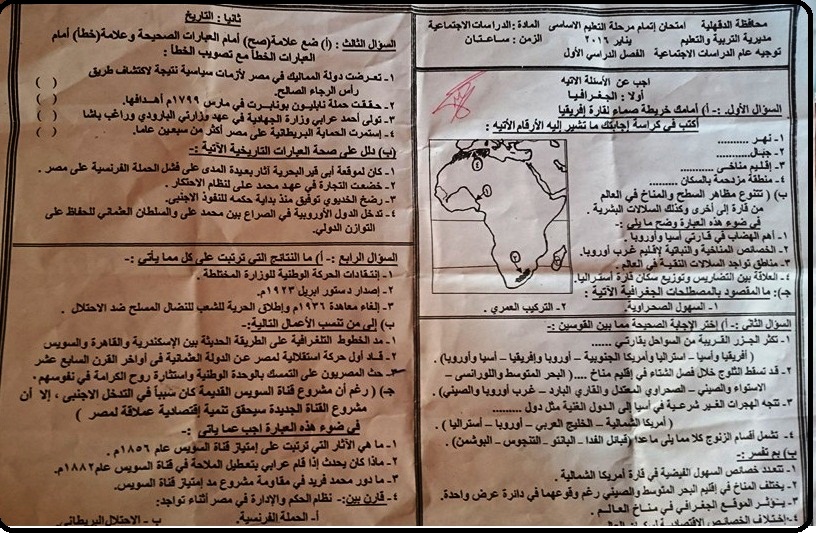 محافظة الدقهلية امتحان إتمام مرحلة التعليم الاساسى المادة : الدراسات الاجتماعية
مديرية التربية والتعليم يناير ٢٠١٦ الزمن : ساعتان
توجيه عام الدراسات الاجتماعية الفصل الدراسي الأول
اجب عن الأسئلة الاتيه
أولا : الجغرافيا
السؤال الأول :- أ) أمامك خريطة صماء لقارة إفريقيا
أكتب في كراسة إجابتك ما تشير إليه الأرقام الأتيه :
١- نهر ..........
٢- جبال..........
٣- إقليم مناخى ..........
٤- منطقة مزدحمة بالسكان ..........
ب) ( تتنوع مظاهر السطح والمناخ في العالم
من قارة إلى أخرى وكذلك السلالات البشرية .
في ضوء هذه العبارة وضح ما يلى :-
١- أهم الهضاب في قارتي أسيا وأوروبا .
٢- الخصائص المناخية والنباتية لإقليم غرب أوروبا.
٣- مناطق تواجد السلالات النقية في العالم .
٤- العلاقة بين التضاريس وتوزيع سكان قارة أستراليا.
جـ): ما المقصود بالمصطلحات الجغرافية الأتية :
١- السهول الصحراوية. ٢- التركيب العمري .
السؤال الثاني :- أ) إختر الإجابة الصحيحة مما بين القوسين :-
١- تكثر الجزر القريبة من السواحل بقارتي ......
( أفريقيا وأسيا - استراليا وأمريكا الجنوبية - أوروبا وإفريقيا - أسيا وأوروبا) .
٢- قد تسقط الثلوج خلال فصل الشتاء في إقليم مناخ .... ( البحر المتوسط واللورانسى -
الاستواء والصيني - الصحراوي المعتدل والقاري البارد - غرب أوروبا والصيني) .
٣- تتجه الهجرات الغير شرعية في أسيا إلى الدول الغنية مثل دول ..........
( أمريكا الشمالية - الخليج العربي - أوروبا - أستراليا ) .
٤- تشمل أقسام الزنوج كلا مما يلى ما عدا (قبائل الفدا - البانتو - التنجوس - البوشمن).
ب) بم تفسر :-
١- تتعدد خصائص السهول الفيضية في قارة أمريكا الشمالية .
٢- يختلف المناخ في إقليم البحر المتوسط والصيني رغم وقوعهما في دائرة عرض واحدة.
٣- يؤثر الموقع الجغرافي في مناخ العالم .
٤- إختلاف الخصائص الاقتصادية
ثانيا : التاريخ
السؤال الثالث : (أ) ضع علامة(صح) أمام العبارات الصحيحة وعلامة(خطأ) أمام
العبارات الخطأ مع تصويب الخطأ :
١- تعرضت دولة المماليك في مصر لأزمات سياسية نتيجة لاكتشاف طريق
رأس الرجاء الصالح. ( )
٢- حققت حملة نابليون بونابرت في مارس ١٧٩٩م أهدافها. ( )
٣- تولى أحمد عرابي وزارة الجهادية في عهد وزارتي البارودي وراغب باشا ( )
٤- إستمرت الحماية البريطانية على مصر أكثر من سبعين عاما. ( )
(ب) دلل على صحة العبارات التاريخية الأتية :-
١- كان لموقعة أبى قير البحرية أثار بعيدة المدى على فشل الحملة الفرنسية على مصر .
٢- خضعت التجارة في عهد محمد على لنظام الاحتكار .
٣- رضخ الخديوي توفيق منذ بداية حكمه للنفوذ الاجنبى.
٤- تدخل الدول الأوروبية في الصراع بين محمد على والسلطان العثماني للحفاظ على
التوازن الدولي.
السؤال الرابع :- أ) ما النتائج التي ترتبت على كل مما يأتي :-
١- إنتقادات الحركة الوطنية للوزارة المختلطة .
٢- إصدار دستور ابريل ١٩٢٣م.
٣- إلغاء معاهدة ١٩٣٦م وإطلاق الحرية للشعب للنضال المسلح ضد الاحتلال .
ب) إلى من تنسب الأعمال التالية:-
١- مد الخطوط التلغرافية على الطريقة الحديثة بين الإسكندرية والقاهرة والسويس
٢- قاد أول حركة استقلالية لمصر عن الدولة العثمانية فى أواخر القرن السابع عشر
٣- حث المصريون على التمسك بالوحدة الوطنية واستثارة روح الكرامة في نفوسهم .
جـ) ( رغم أن مشروع قناة السويس القديمة كان سبباً في التدخل الاجنبى ، إلا أن
مشروع القناة الجديدة سيحقق تنمية إقتصادية عملاقة لمصر )
في ضوء هذه العبارة اجب عما يأتي :-
١- ما هي الأثار التي ترتبت على إمتياز قناة السويس عام ١٨٥٦م .
٢- ماذا كان يحدث إذا قام عرابي بتعطيل الملاحة في قناة السويس عام ١٨٨٢م.
٣- ما دور محمد فريد في مقاومة مشروع مد إمتياز قناة السويس.
٤- قارن بين:- نظام الحكم والإدارة في مصر أثناء تواجد:
أ- الحملة الفرنسية. ب - الاحتلال البريطاني